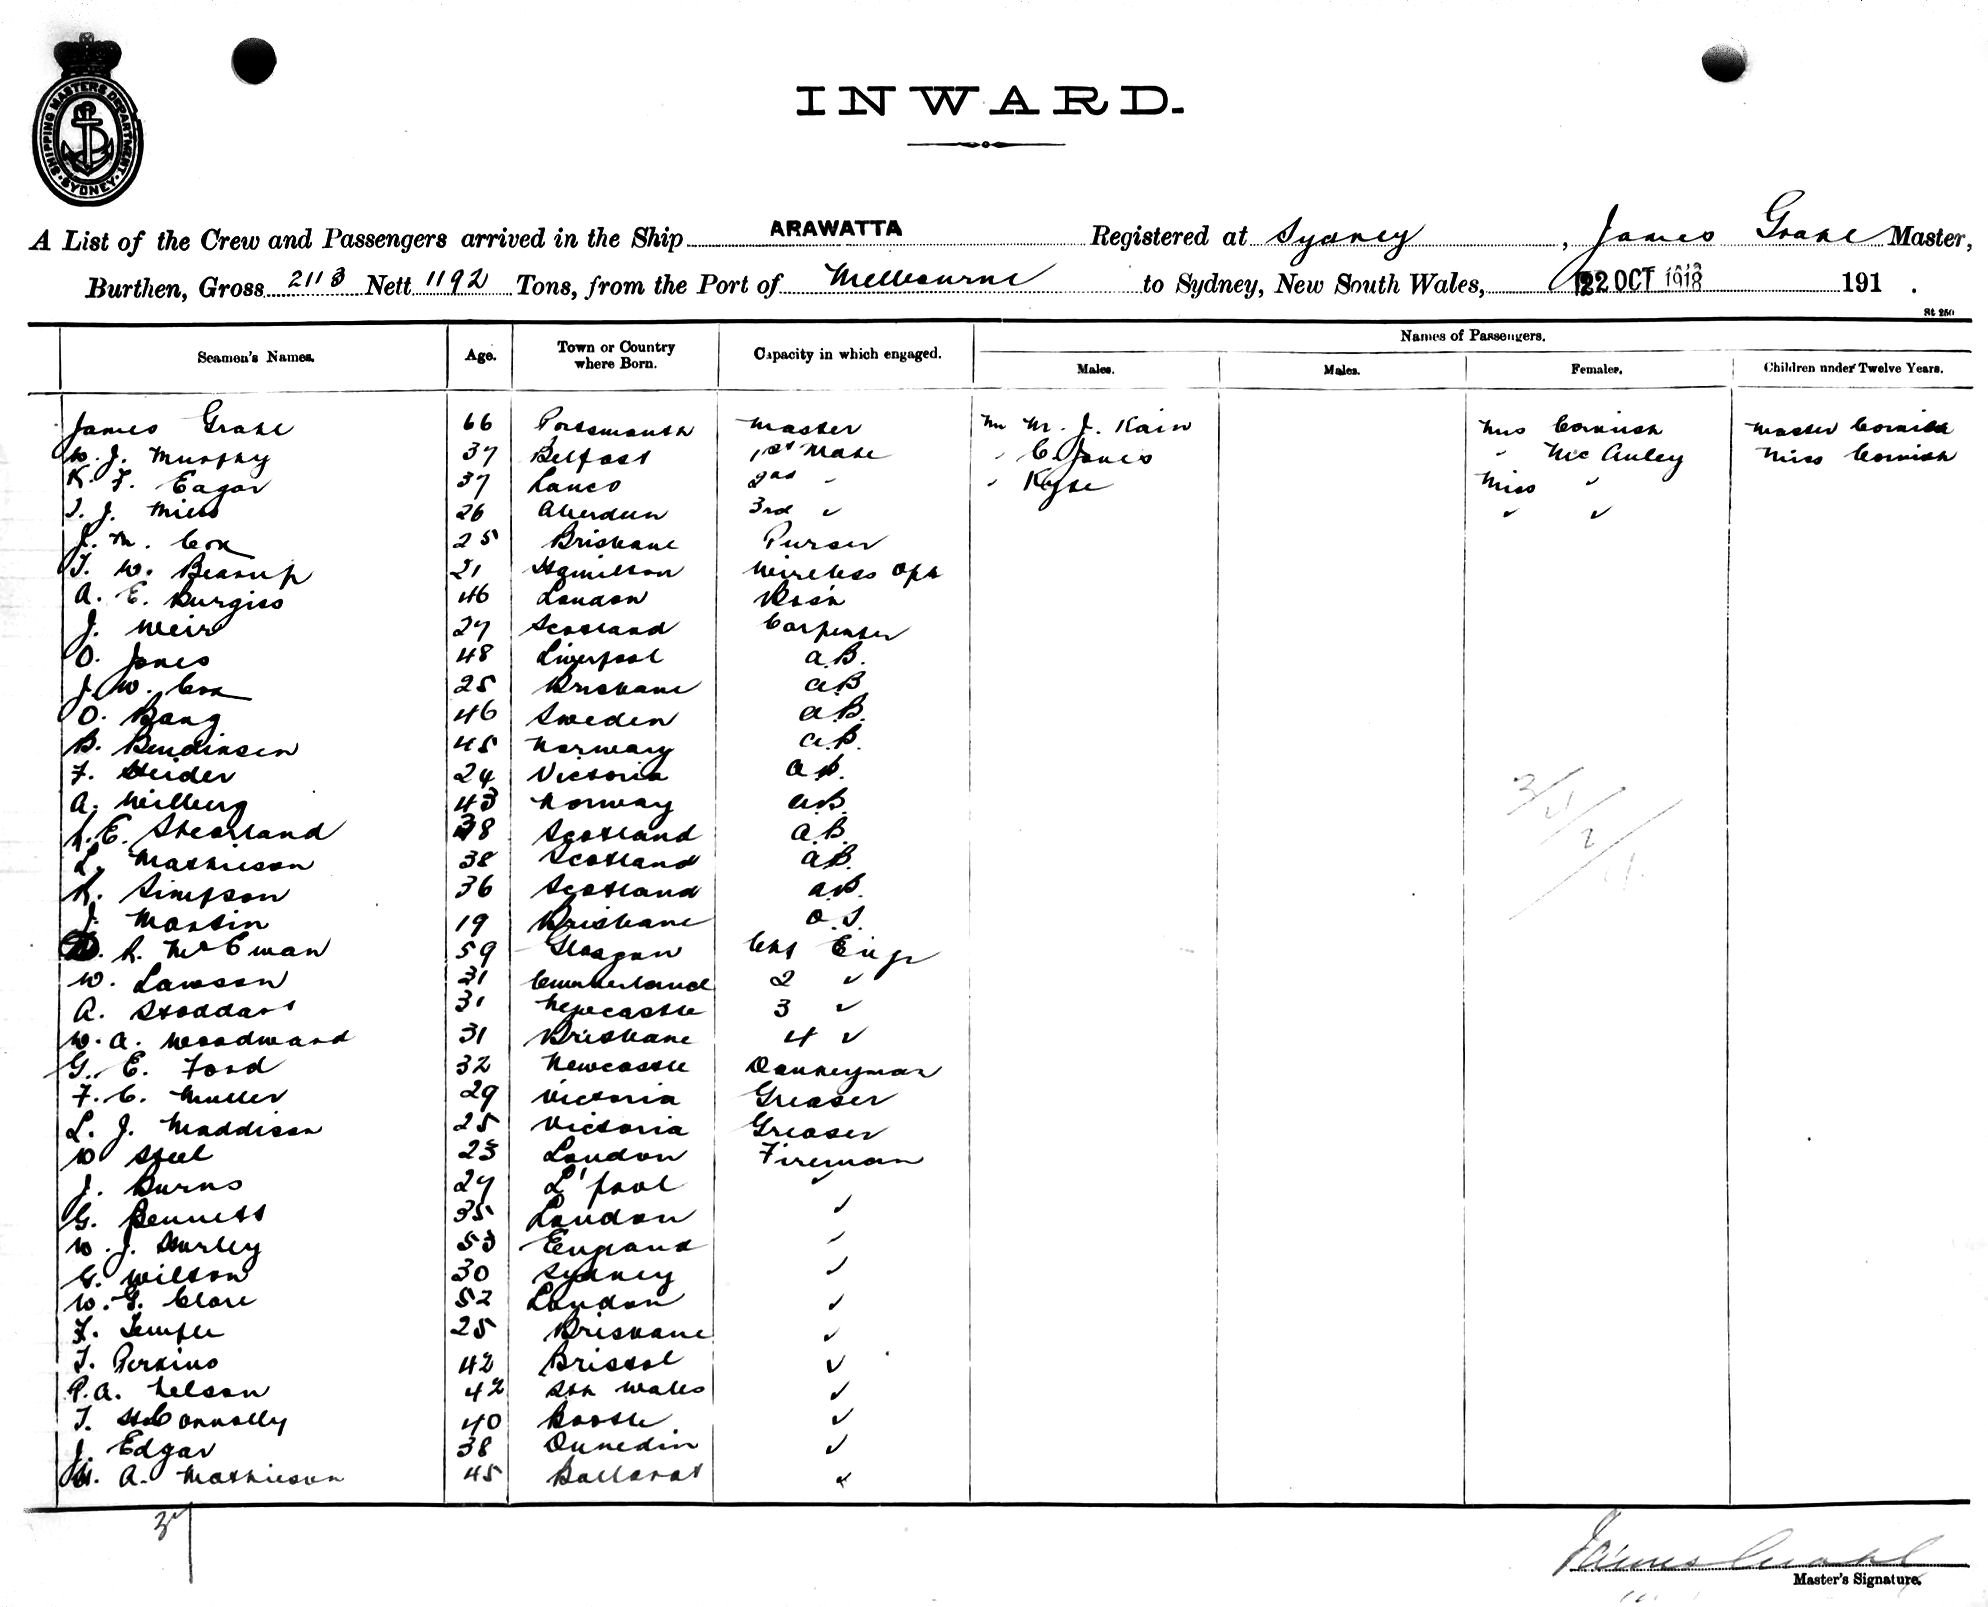 SHIPPING MASTERS DEPARTMENT SYDNEY
INWARD.
A List of the Crew and Passengers arrived in the Ship ARAWATTA Registered at Sydney, James Grahl Master,
Burthen, Gross 2113 Nett 1192 Tons, from the Port of Melbourne to Sydney, New South Wales, 22 OCT 1918 191 .
St 250
Seamen's Names. Age. Town or Country where Born. Capacity in which engaged. Names of Passengers.
Males. Males. Females. Children under Twelve Years.
James Grahl 66 Portsmouth Master Mr M. J. Kain Mrs Cornish Master Cornish
W. J. Murphy 37 Belfast 1st Mate " C. Jones " McAuley Miss Cornish
K. F. Eagar 37 Lancs 2nd " " Miss "
T. J. Mills 26 Aberdeen 3rd " " "
J. M. Cox 25 Brisbane Purser
T. W. Bearup 21 Hamilton Wireless Opr
A. E. Burgiss 46 London Bosn
J. Weir 27 Scotland Carpenter
O. Jones 48 Liverpool A.B.
J. W. Cox 25 Brisbane A.B
O. Bang 46 Sweden A.B.
B. Bendiksen 45 Norway A.B.
F. 24 Victoria A.B.
A. Milburg 43 Norway A.B.
R. E. Shearland 38 Scotland A.B.
L. Mathieson 38 Scotland A.B.
R. Simpson 36 Scotland A.B.
J. Martin 19 Brisbane O.S.
D. R. McEwan 59 Glasgow Chf Engr
W. Lawson 31 Cumberland 2 "
A. Stoddart 31 Newcastle 3 "
W. A. Woodward 31 Brisbane 4 "
G. E. Ford 32 Newcastle Donkeyman
F. C. Muller 29 Victoria Greaser
L. J. Maddison 25 Victoria Greaser
W Steel 23 London Fireman
J. Burns 27 L'pool "
G. Bennett 35 London "
W. J. Hurley 53 England "
G. Wilson 30 Sydney "
W. G. Clare 52 London "
F. Temple 25 Brisbane "
T. Perkins 42 Bristol "
P. A. Nelson 42 Sth Wales "
T. H. Connolly 40 Bootle "
J. Edgar 38 Dunedin "
A. Mathieson 45 Ballarat "
37
James Grahl
Master's Signature.